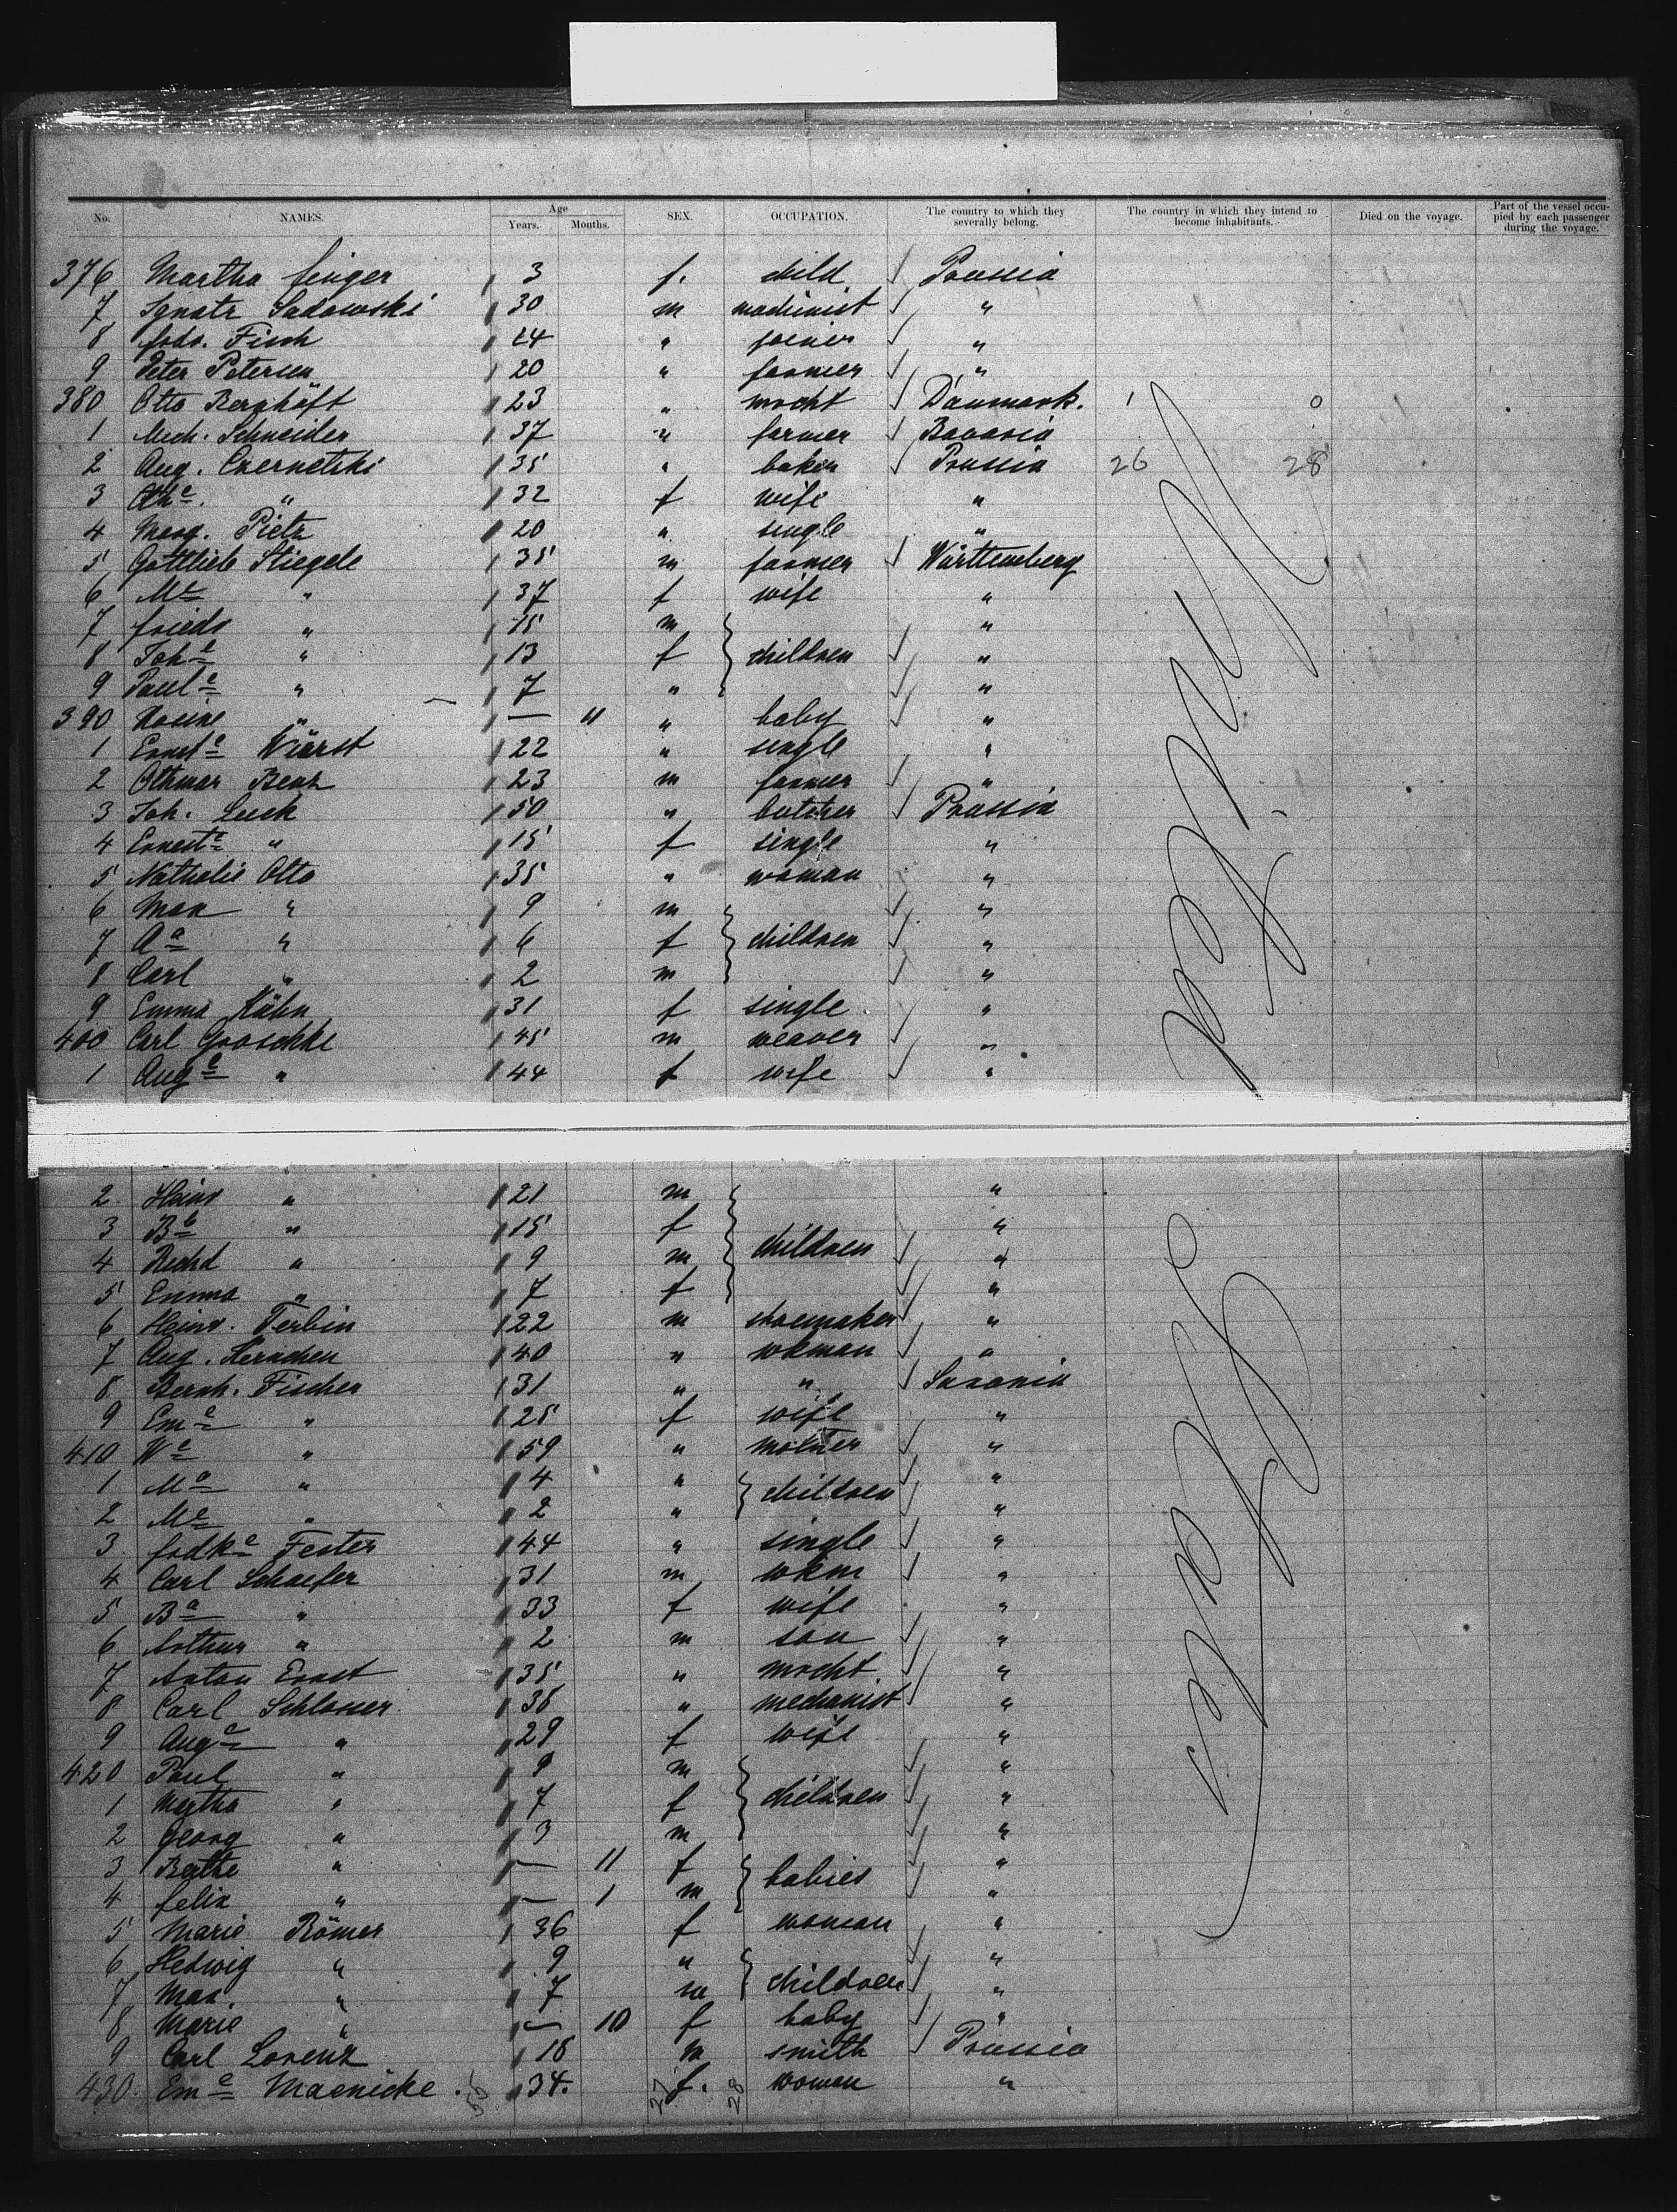 No. NAMES. Age Years. Months. SEX. OCCUPATION. The country to which they severally belong. The country in which they intend to become inhabitants. Died on the voyage. Part of the vessel occupied by each passenger during the voyage.
376 Martha finger 3 f. child Prussia
7 Ignatz Sadowski 30 m machinist "
8 frdr. Fisch 24 " joiner "
9 Peter Petersen 20 " farmer "
380 Otto Berghöft 23 " mrcht Danmark. 1 0
1 Mich. Schneider 37 " farmer Bavaria
2 Aug. Czernetzki 35 " baker Prussia 26 28
3 " 32 f wife "
4 Marg. Pietz 20 " single "
5 Gottlieb Stiegele 35 m farmer Württemberg
6 Me " 37 f wife "
7 friedr " 15 m "
8 Johe " 13 f children "
9 Paule " 7 " "
390 Rosine " — 11 " baby "
1 Ernste Würst 22 " single "
2 Othmar Benz 23 m farmer "
3 Joh. Luck 50 " butcher Prussia
4 Erneste " 15 f single "
5 Nathalie Otto 35 " woman "
6 Max " 9 m "
7 Aa " 6 f children "
8 Carl " 2 m "
9 Emma Kühn 31 f single "
400 Carl Groschke 45 m weaver "
1 Auge " 44 f wife "
2 Heinr " 21 m "
3 " 15 f "
4 Richd " 9 m children "
5 Emma " 7 f "
6 Heinr. Terbin 22 m shoemaker "
7 Aug. Hernchen 40 " wkman "
8 Bernh. Fischer 31 " " Saxonia
9 Eme " 25 f wife "
410 We " 59 " mother "
1 Ma " 4 " children "
2 Me " 2 " "
3 frdke Fester 44 " single "
4 Carl Schaefer 31 m wkm "
5 Ba " 33 f wife "
6 Arthur " 2 m son "
7 Anton Ernst 35 " mrcht "
8 Carl Schlosser 36 " mechanist "
9 Auge " 29 f wife "
420 Paul " 9 m "
1 Martha " 7 f children "
2 Georg " 3 m "
3 Berthe " — 11 f babies "
4 felix " — 1 m "
5 Marie Römer 36 f woman "
6 Hedwig " 9 " "
7 Max. " 7 m children "
8 Marie " — 10 f baby "
9 Carl Lorenz 18 m smith Prussia
430 Eme Maenicke. 34. f. woman "
55 27 28